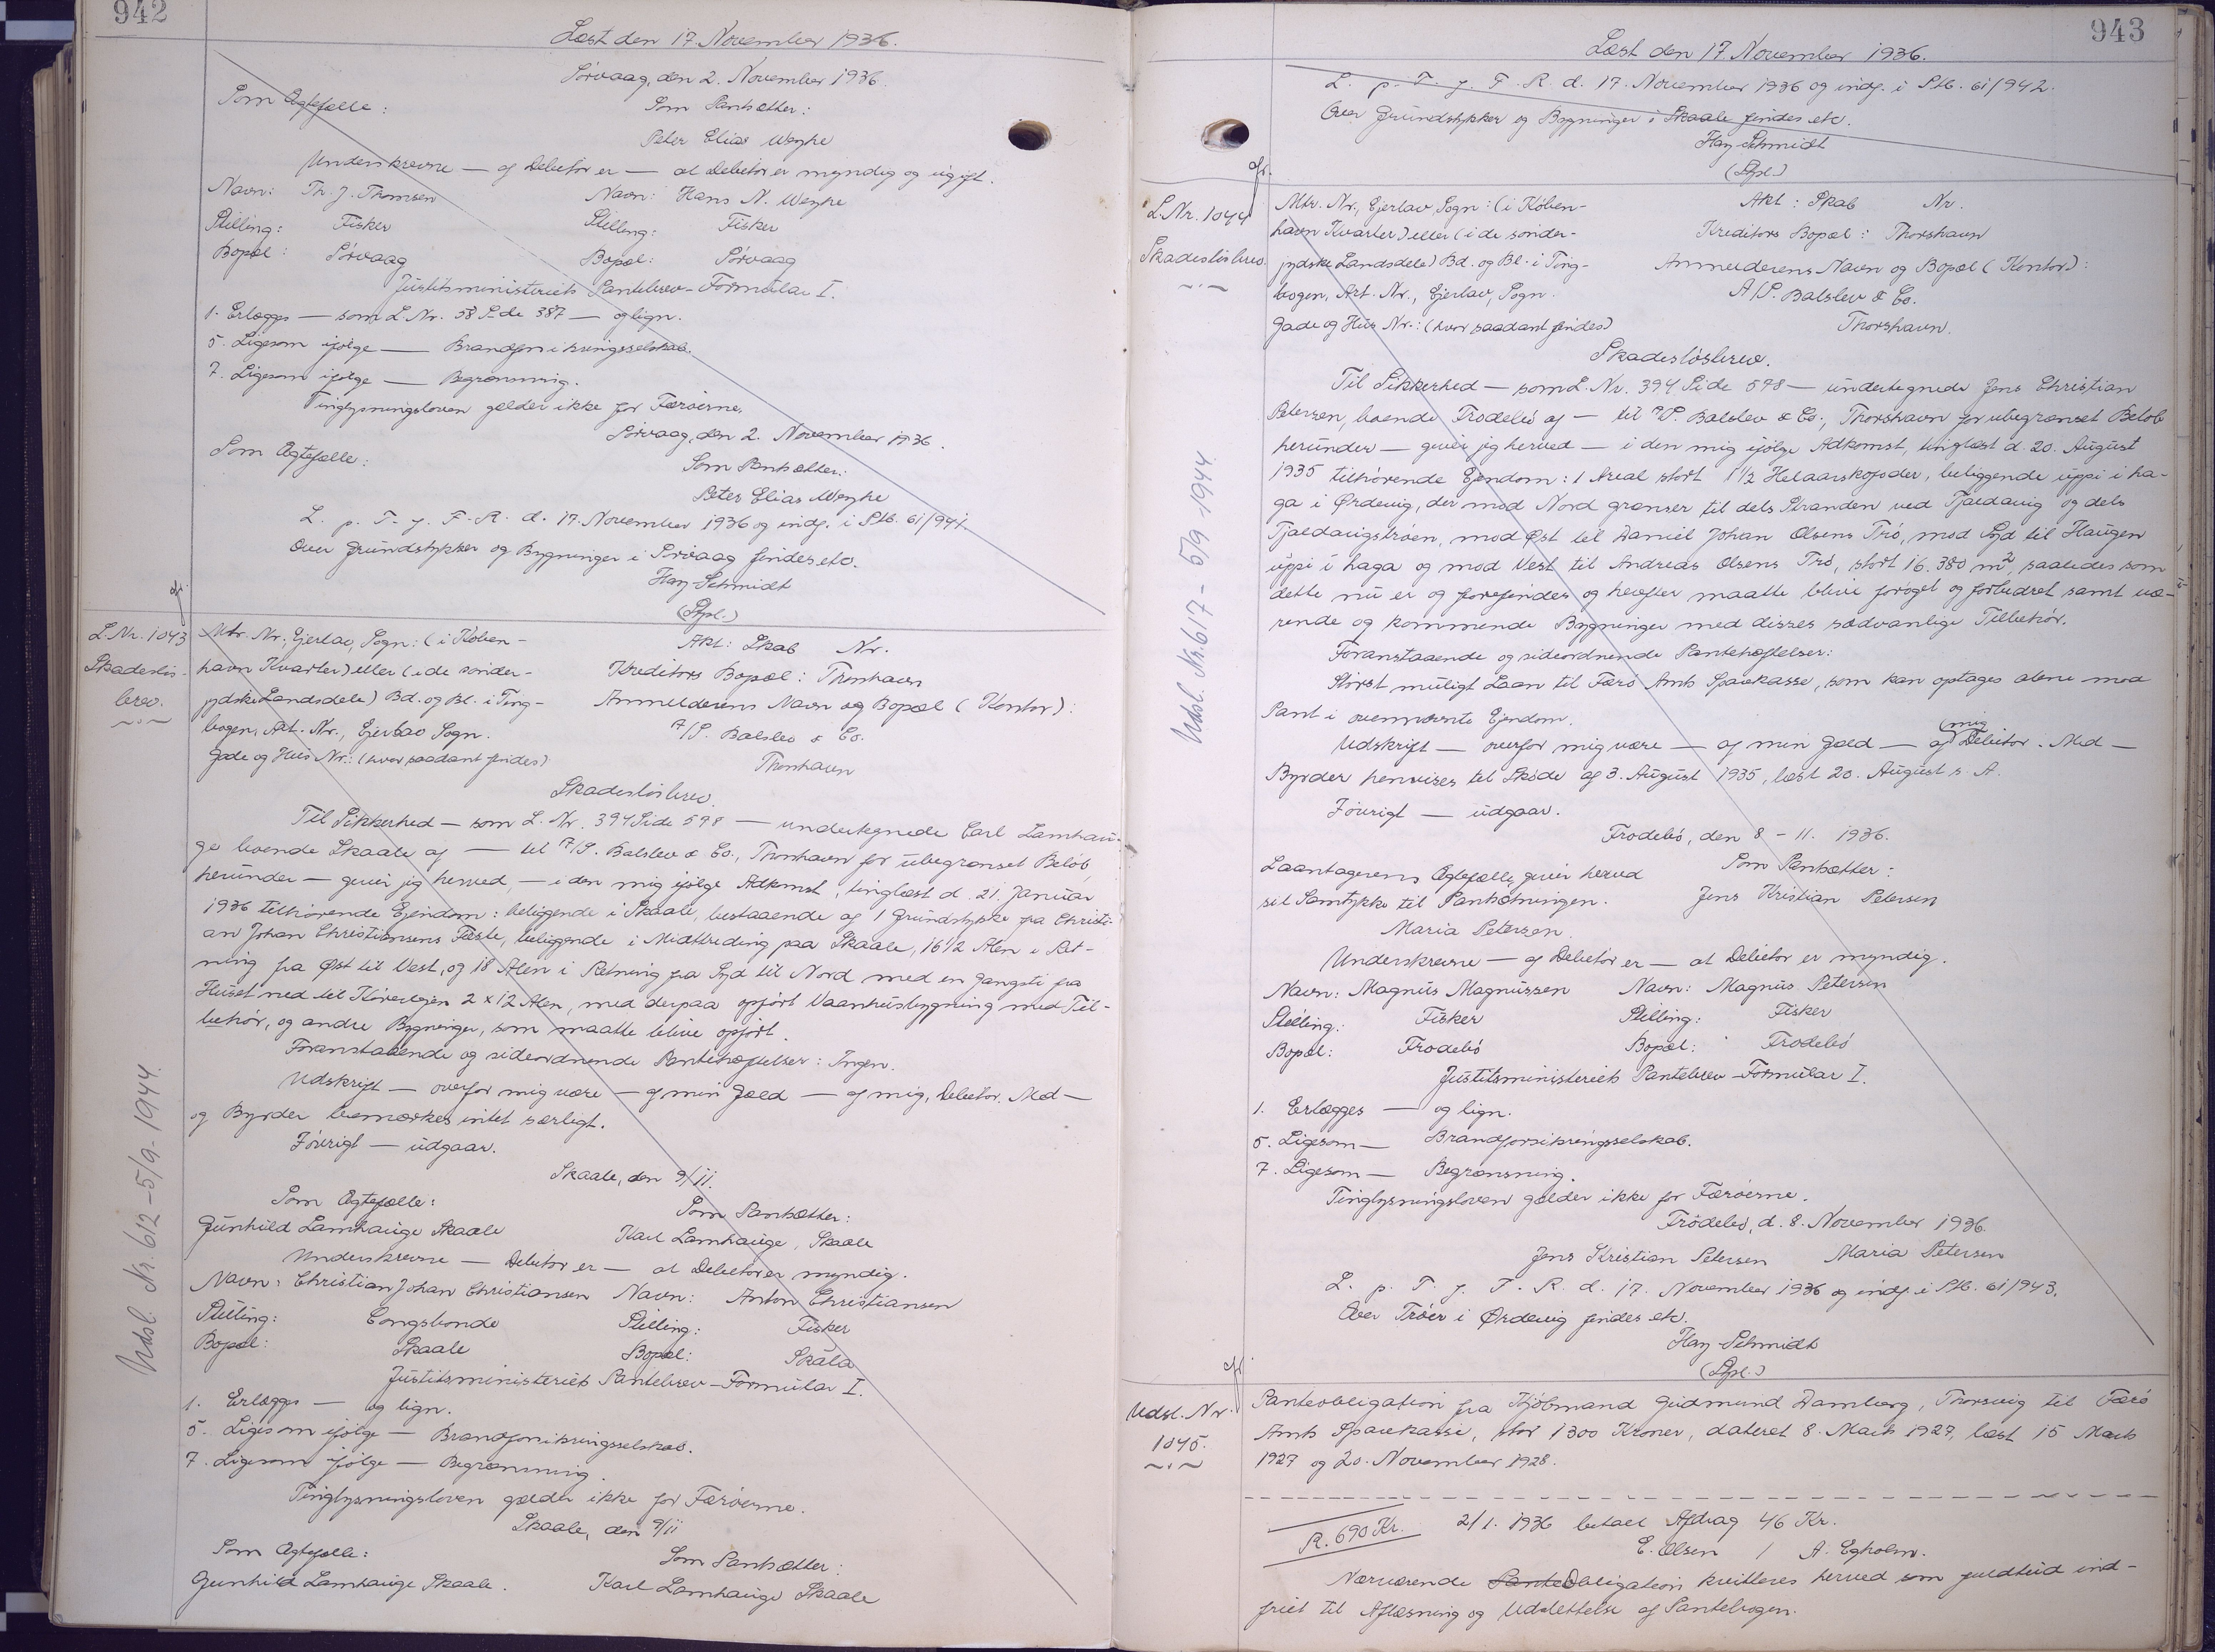 942
Læst den 17 November 1936.
Sörvaag, den 2. November 1936.
Som Ægtefælle: Som Panhætter:
Peter Elias Weyhe
Underskrevne — af Debitor er — at Debitor er myndig og ugift.
Navn: Th. J. Thomsen Navn: Hans N. Weyhe
Stilling: Fisker Stilling: Fisker
Bopæl: Sörvaag Bopæl: Sörvaag
Justitsministeriets Pantebrev-Formular I.
1. Erlægges — som L. Nr. 58 Side 387 — og lign.
5. Ligesom ifølge — Brandforsikringsselskab.
7. Ligesom ifølge — Begrænsning.
Tinglysningsloven gælder ikke for Færöerne.
Sörvaag, den 2. November 1936.
Som Ægtefælle: Som Pantsætter:
Peter Elias Weyhe
L. p. T. f. F. R. d. 17. November 1936 og indf. i Ptb. 61/941.
Over Grundstykker og Bygninger i Sörvaag findes etc.
Hay-Schmidt
(Spl.)
afs.
L. Nr. 1043
Skadeslös-
brev.
Mtr. Nr., Ejerlav, Sogn: (i Köben- Akt: Skab Nr.
havn Kvarter) eller (i de sönder- Kreditors Bopæl: Thorshavn
jydske Landsdele) Bd. og Bl. i Ting- Anmelderens Navn og Bopæl (Kontor):
bogen, Art. Nr., Ejerlav, Sogn. A/S. Balslev & Co.
Gade og Hus Nr.: (hvor saadant findes) Thorshavn
Skadeslösbrev.
Til Sikkerhed — som L. Nr. 394 Side 598 — undertegnede Carl Lamhau-
ge boende Skaale af — til A/S. Balslev & Co., Thorshavn for ubegrænset Belöb
herunder — giver jeg herved — i den mig ifølge Adkomst, tinglæst d. 21. Januar
1936 tilhörende Ejendom: beliggende i Skaale, bestaaende af 1 Grundstykke fra Christi-
an Johan Christiansens Fæste, beliggende i Midttriding paa Skaale, 16½ Alen i Ret-
ning fra Øst til Vest, og 18 Alen i Retning fra Syd til Nord med en Gangsti fra
Huset ned til Kørevegen 2 x 12 Alen, med derpaa opfört Vaanhusbygning med Til-
behör, og andre Bygninger, som maatte blive opfört.
Foranstaaende og sideordnende Pantehæftelser: Ingen.
Udskrift — overfor mig være — af min Gæld — af mig, Debitor. Med —
og Byrder bemærkes intet særligt.
Iövrigt — udgaar.
Skaale, den 9/11.
Som Ægtefælle: Som Pantsætter:
Gunhild Lamhauge Skaale Karl Lamhauge, Skaale
Underskrevne — Debitor er — at Debitor er myndig.
Navn: Christian Johan Christiansen Navn: Anton Christiansen
Stilling: Congsbonde Stilling: Fisker
Bopæl: Skaale Bopæl: Skåla
Justitsministeriets Pantebrev-Formular I.
1. Erlægges — og lign.
5. Ligesom ifølge — Brandforsikringsselskab.
7. Ligesom ifølge — Begrænsning.
Tinglysningsloven gælder ikke for Færöerne.
Skaale, den 9/11
Som Ægtefælle: Som Pantsætter:
Gunhild Lamhauge Skaale. Karl Lamhauge Skaale
Udsl. Nr. 612 - 5/9-1944.
943
Læst den 17 November 1936.
L. p. T. f. F. R. d. 17. November 1936 og indf. i Ptb. 61/942.
Over Grundstykker og Bygninger i Skaale findes etc.
Hay-Schmidt
(Spl.)
afs.
L. Nr. 1044
Skadeslösbrev.
Mtr. Nr., Ejerlav, Sogn: (i Köben- Akt: Skab Nr.
havn Kvarter) eller (i de sönder- Kreditors Bopæl: Thorshavn
jydske Landsdele) Bd. og Bl. i Ting- Anmelderens Navn og Bopæl (Kontor):
bogen, Art. Nr., Ejerlav, Sogn. A/S. Balslev & Co.
Gade og Hus Nr.: (hvor saadant findes) Thorshavn.
Skadeslösbrev.
Til Sikkerhed — som L. Nr. 394 Side 598 — undertegnede Jens Christian
Petersen, boende Frodebö af — til A/S. Balslev & Co., Thorshavn for ubegrænset Belöb
herunder — giver jeg herved — i den mig ifølge Adkomst, tinglæst d. 20. August
1935 tilhörende Ejendom: 1 Areal stort 1½ Helaarskofoder, beliggende uppi i ha-
ga i Ørdevig, der mod Nord grænser til dels Stranden ved Tjaldavig og dels
Tjaldavigströen, mod Øst til Daniel Johan Olsens Trö, mod Syd til Haugen
uppi i haga og mod Vest til Andreas Olsens Trö, stort 16.380 m², saaledes som
dette nu er og forefindes og herefter maatte blive foröget og forbedret samt væ-
rende og kommende Bygninger med disses sædvanlige Tilbehör.
Foranstaaende og sideordnende Pantehæftelser:
Störst muligt Laan til Færö Amts Sparekasse, som kan optages alene mod
Pant i ovennævnte Ejendom.
Udskrift — overfor mig være — af min Gæld — af (mig Debitor. Med —
Byrder henvises til Sköde af 3. August 1935, læst 20. August s. A.
Iövrigt — udgaar.
Frodebö, den 8 - 11. 1936.
Laantagerens Ægtefælle giver herved Som Pantsætter:
sit Samtykke til Pantsætningen. Jens Kristian Petersen
Maria Petersen.
Underskrevne — af Debitor er — at Debitor er myndig.
Navn: Magnus Magnussen Navn: Magnus Petersen
Stilling: Fisker Stilling: Fisker
Bopæl: Frodebö Bopæl: Frodebö
Justitsministeriets Pantebrev-Formular I.
1. Erlægges — og lign.
5. Ligesom — Brandforsikringsselskab.
7. Ligesom — Begrænsning.
Tinglysningsloven gælder ikke for Færöerne.
Frödebö, d. 8. November 1936.
Jens Kristian Petersen Maria Petersen
L. p. T. f. F. R. d. 17. November 1936 og indf. i Ptb. 61/943.
Over Tröer i Ørdevig findes etc.
Hay-Schmidt
(Spl.)
Udsl. Nr. 617 - 5/9-1944
afs.
Udsl. Nr.
1045.
Panteobligation fra Kjöbmand Gudmund Damberg, Thorsvig til Færö
Amts Sparekasse, stor 1300 Kroner, dateret 8. Marts 1927, læst 15 Marts
1927 og 20. November 1928.
R. 690 Kr. 2/1. 1936 betalt Afdrag 46 Kr.
E. Olsen / A. Egholm.
Nærværende PanteObligation kvitteres herved som fuldtud ind-
friet til Aflæsning og Udslettelse af Pantebogen.